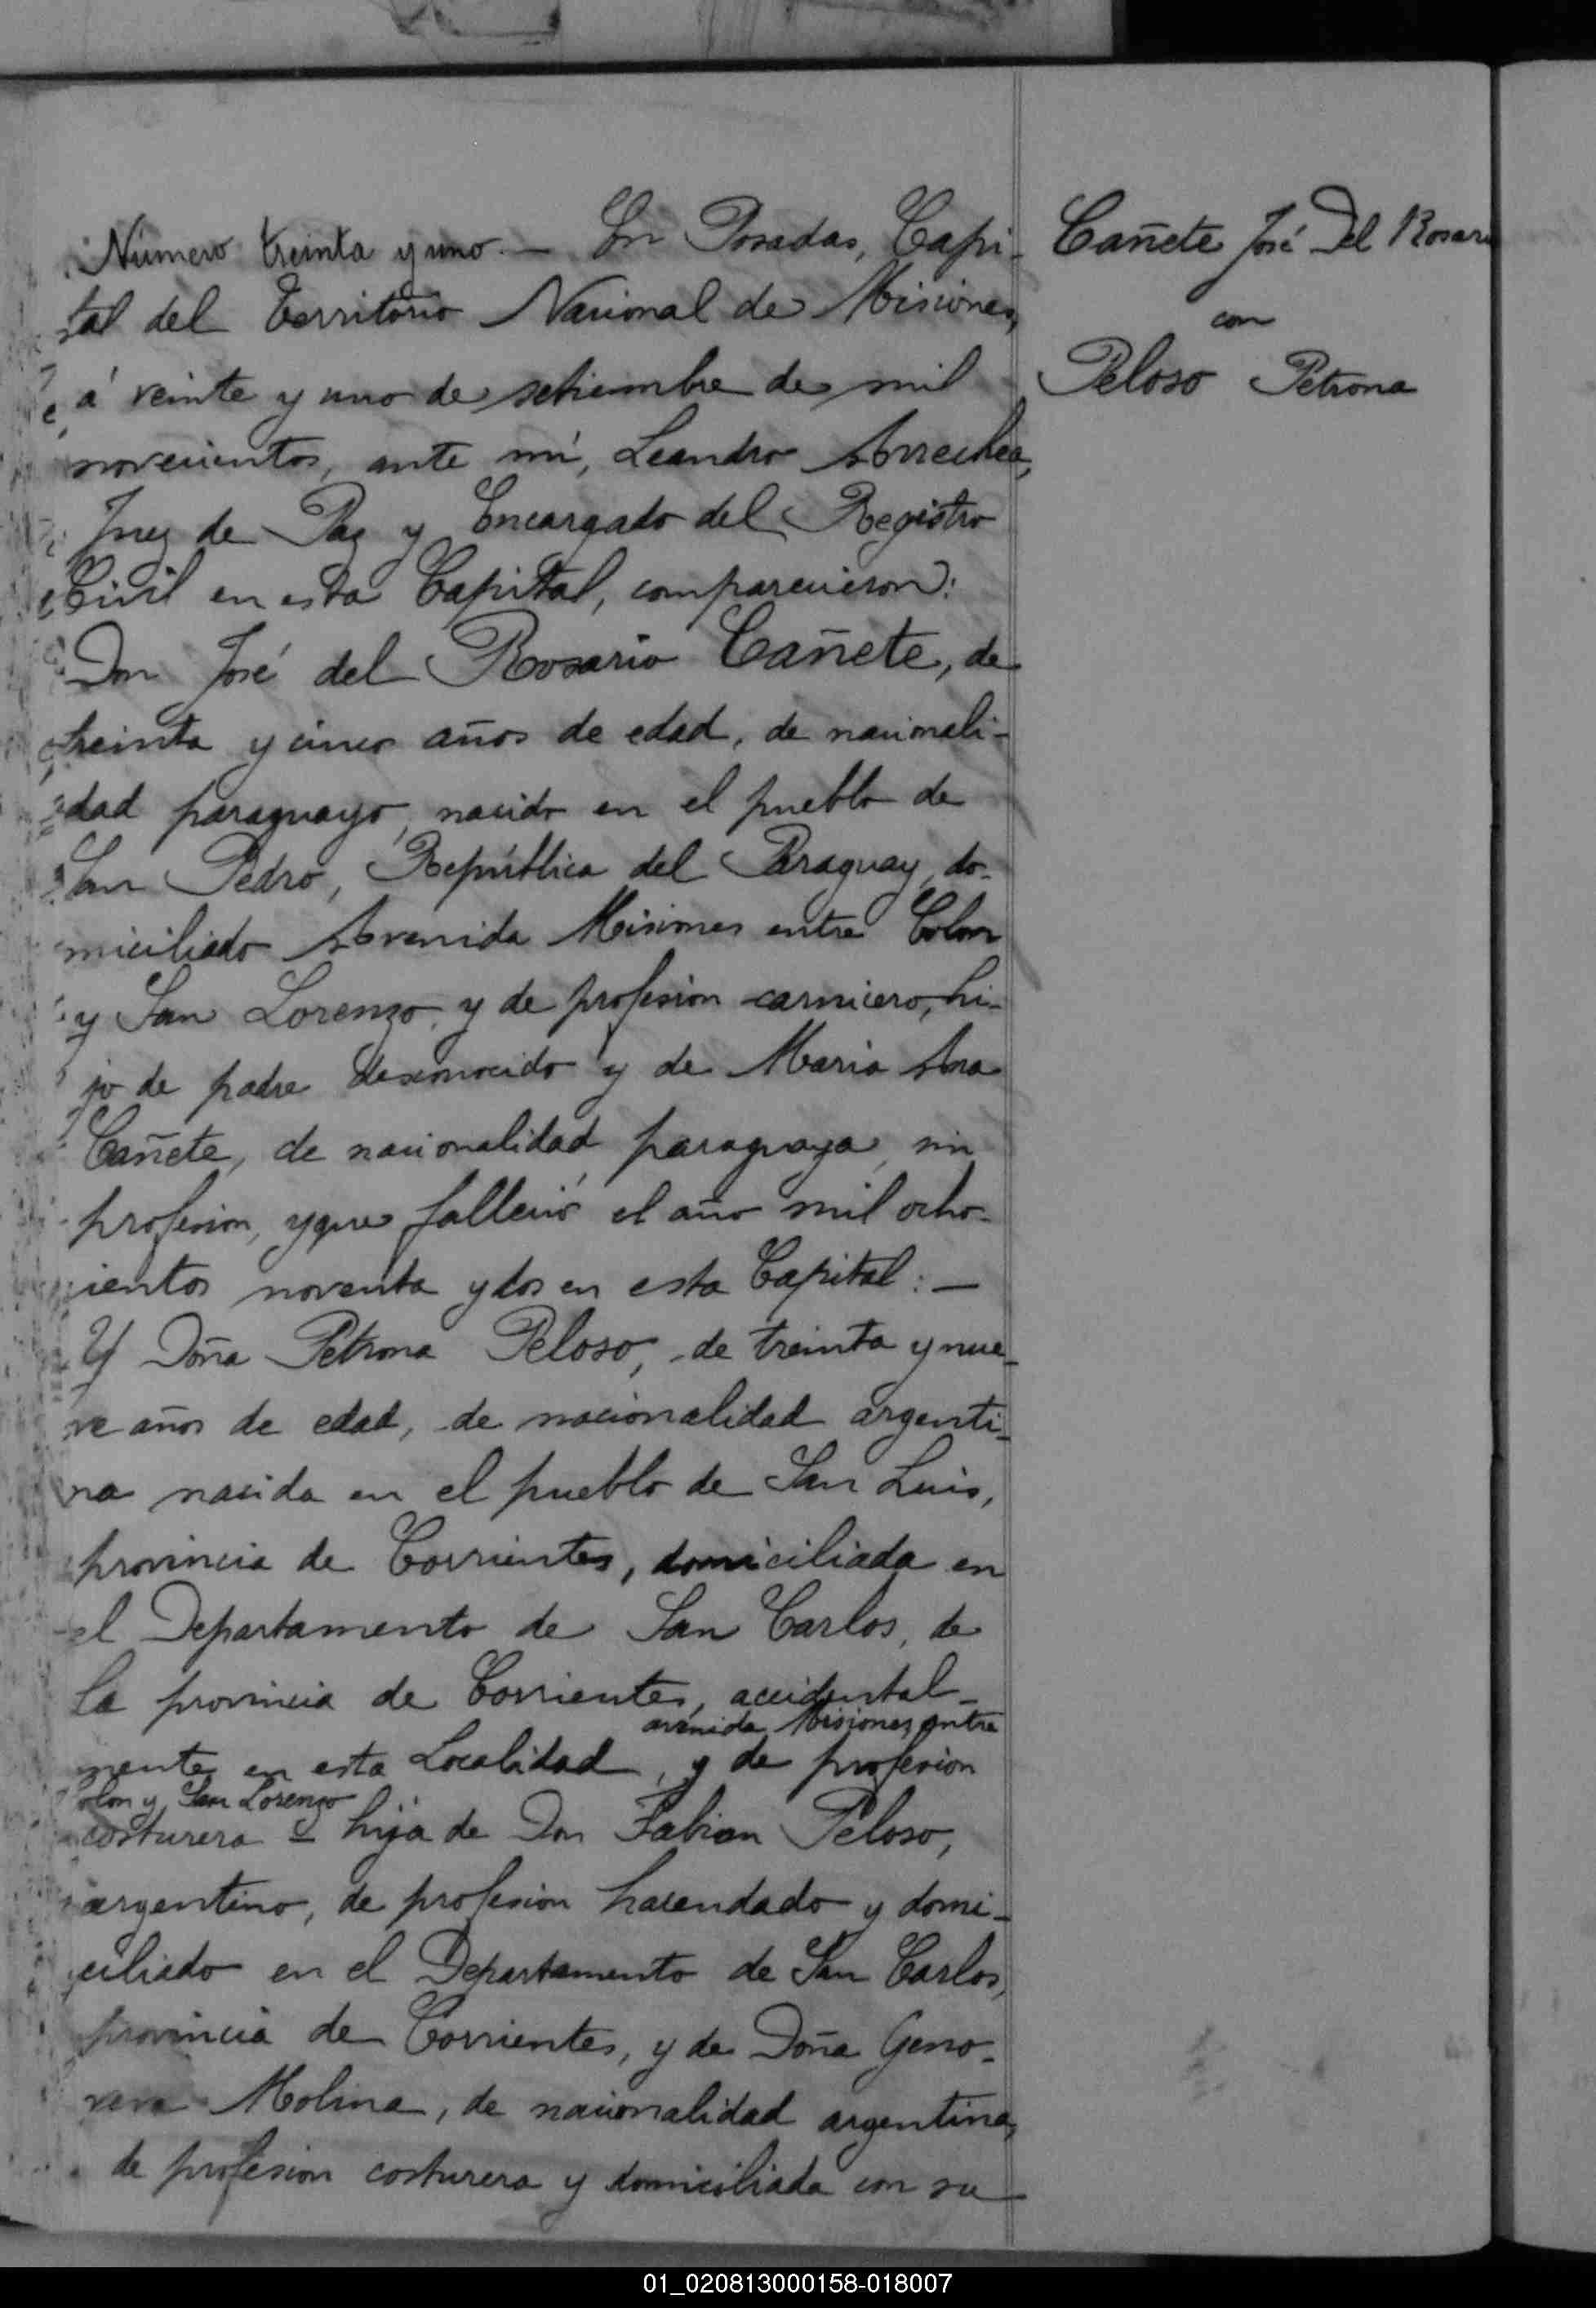 Número treinta y uno. — En Posadas, Capi-
tal del Territorio Nacional de Misiones,
á veinte y uno de setiembre de mil
novecientos, ante mí, Leandro Arrechea,
Juez de Paz y Encargado del Registro
Civil en esta Capital, comparecieron:
Don José del Rosario Cañete, de
treinta y cinco años de edad, de nacionali-
dad paraguayo, nacido en el pueblo de
San Pedro, República del Paraguay, do-
miciliado Avenida Misiones entre Colon
y San Lorenzo, y de profesion carnicero, hi-
jo de padre desconocido y de Maria Ana
Cañete, de nacionalidad paraguaya, sin
profesion, y que falleció el año mil ocho-
cientos noventa y dos en esta Capital: —
Y Doña Petrona Peloso, de treinta y nue-
ve años de edad, de nacionalidad argenti-
na nacida en el pueblo de San Luis,
provincia de Corrientes, domiciliada en
el Departamento de San Carlos, de
la provincia de Corrientes, accidental-
avenida Misiones entre
mente en esta Localidad, y de profesion
Colon y San Lorenzo
costurera = hija de Don Fabian Peloso,
argentino, de profesion hacendado y domi-
ciliado en el Departamento de San Carlos,
provincia de Corrientes, y de Doña Geno-
veva Molina, de nacionalidad argentina,
de profesion costurera y domiciliada con su
Cañete José Del Rosario
con
Peloso Petrona
01_020813000158-018007